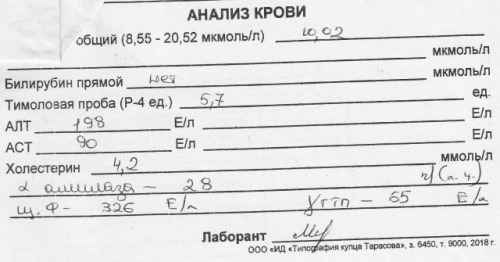 АНАЛИЗ КРОВИ
общий (8,55 - 20,52 мкмоль/л) 10,02
мкмоль/л
Билирубин прямой нет мкмоль/л
Тимоловая проба (Р-4 ед.) 5,7 ед.
АЛТ 198 Е/л Е/л
АСТ 90 Е/л Е/л
Холестерин 4,2 ммоль/л
α амилаза - 28
щ.Ф- 326 Е/л γгтп - 55 Е/л
Лаборант
ООО «ИД «Типография купца Тарасова», з. 6450, т. 9000, 2018 г.